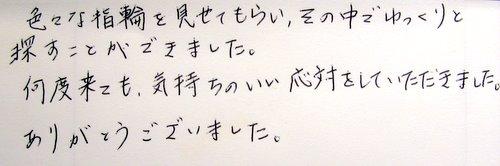 色々な指輪を見せてもらい,その中でゆっくりと
探すことができました。
何度来ても、気持ちのいい応対をしていただきました。
ありがとうございました。